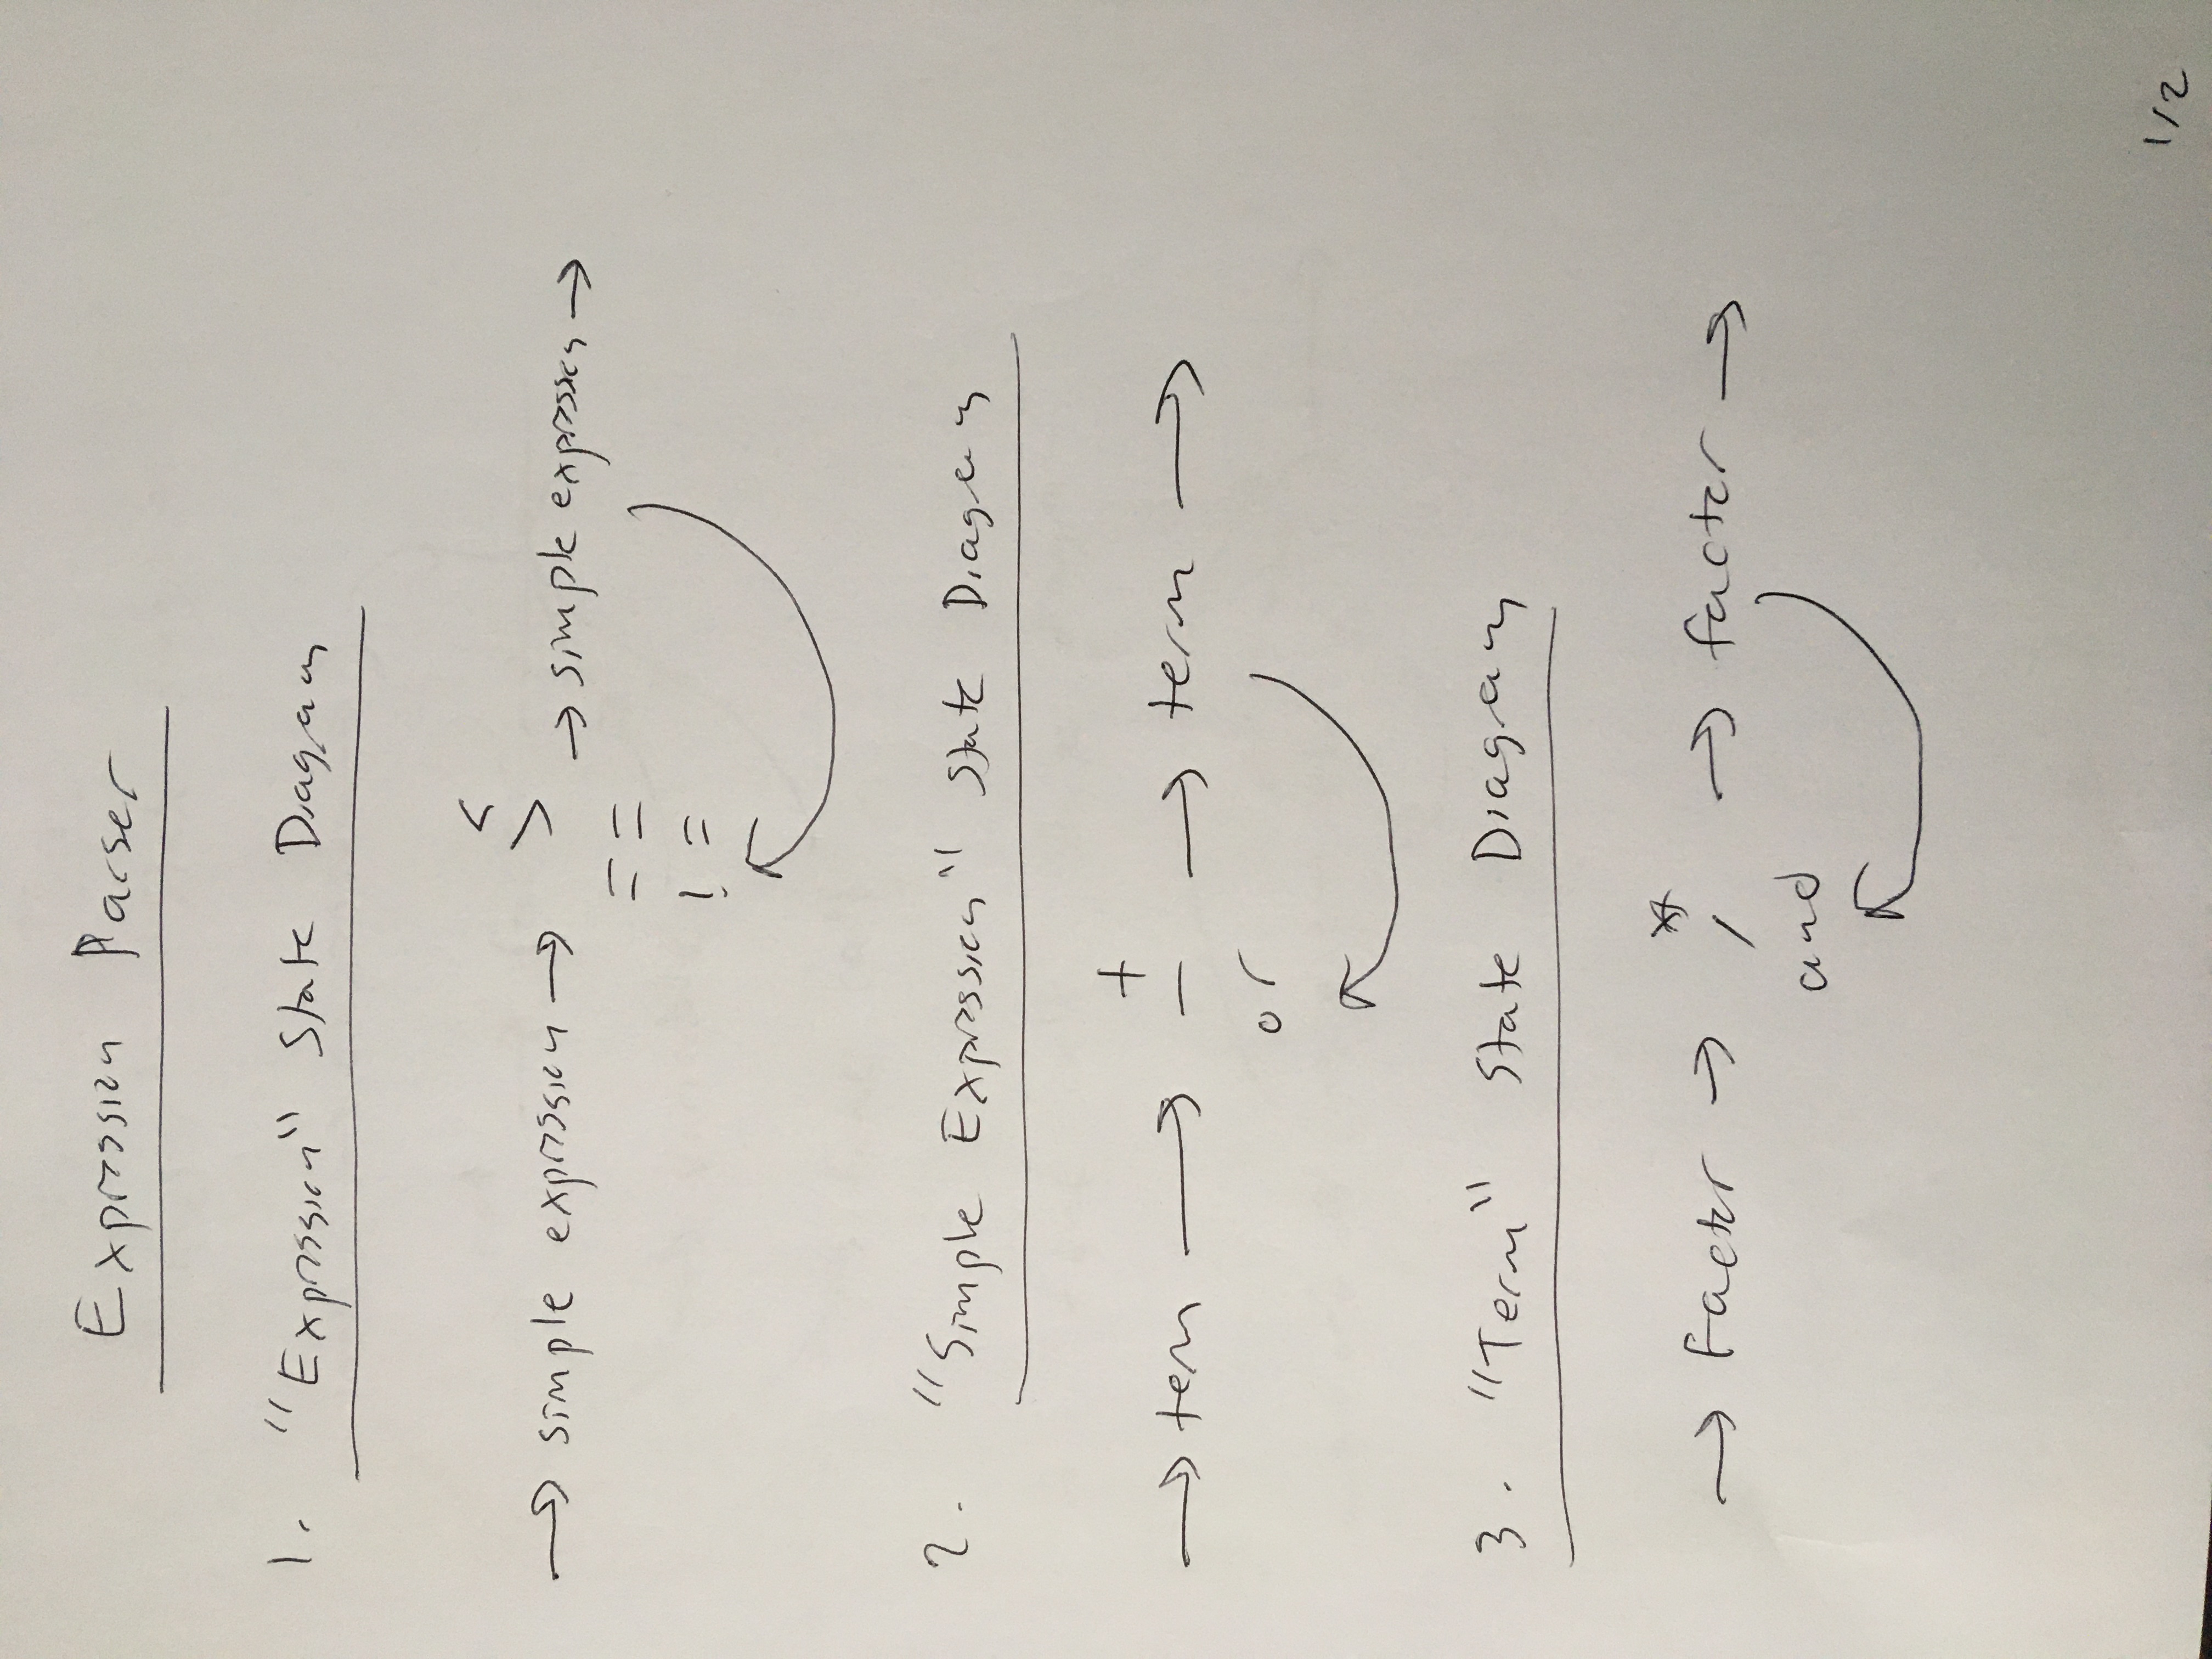 Expression Parser
1. "Expression" State Diagram
<
→ simple expression → > → simple expression →
==
!=
2. "Simple Expression" State Diagram
+
→ term → - → term →
or
3. "Term" State Diagram
*
→ Factor → / → factor →
and
1/2